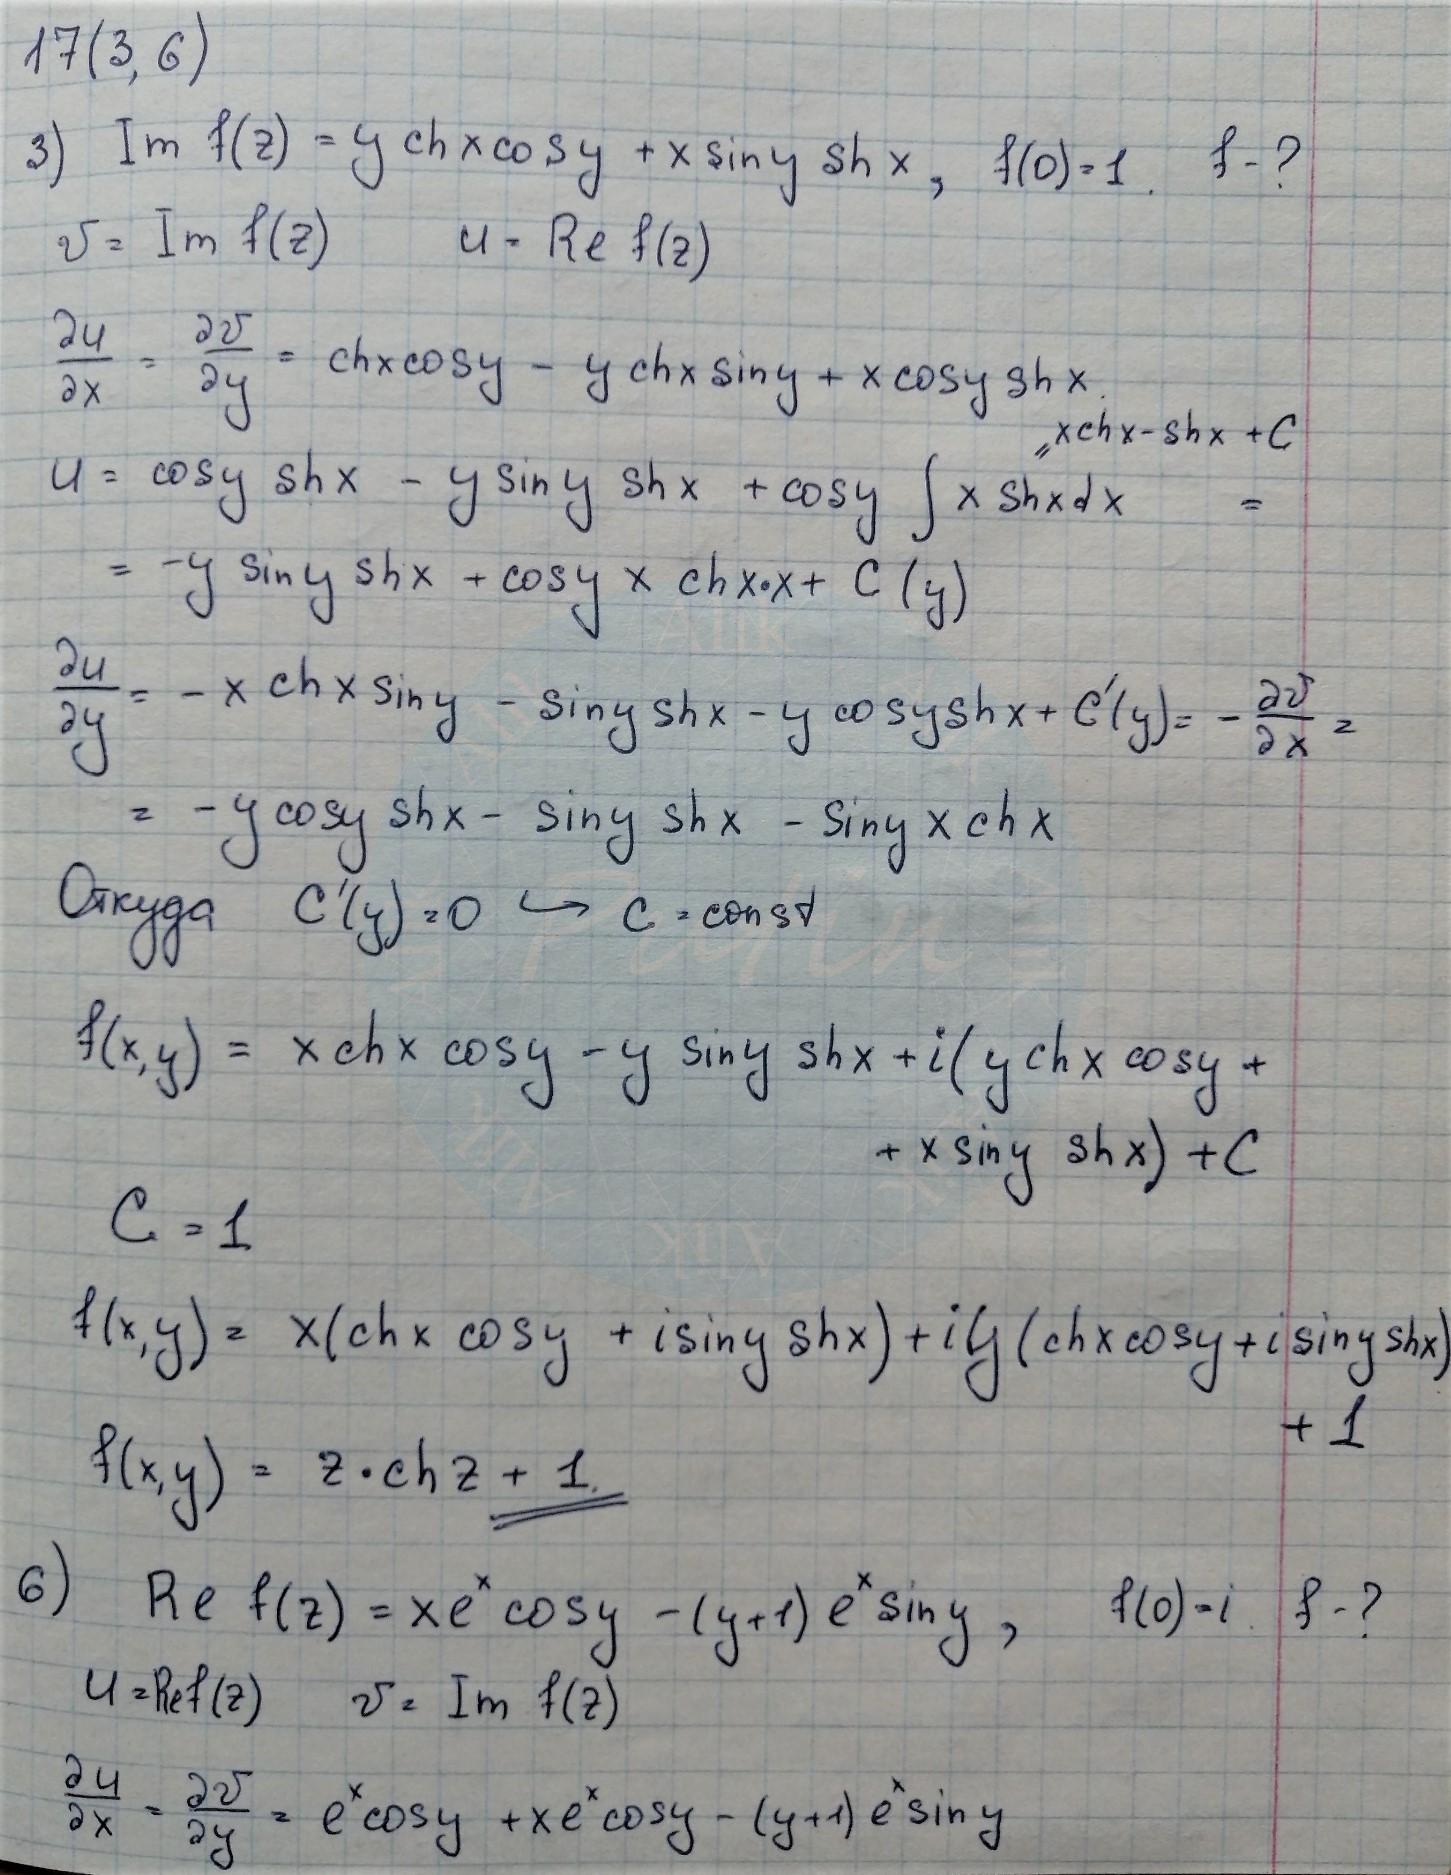 17(3, 6)
3) Im f(z) = y chx cosy + x siny sh x, f(0)=1. f-?
v = Im f(z) u = Re f(z)
∂u/∂x = ∂v/∂y = chx cosy - y chx siny + x cosy shx.
= xchx - shx + C
u = cosy shx - y siny shx + cosy ∫ x shx dx =
= -y siny shx + cosy x chx·x + C(y)
∂u/∂y = - x chx siny - siny shx - y cosy shx + C'(y) = - ∂v/∂x =
= - y cosy shx - siny shx - siny x ch x
Откуда C'(y) = 0 ↪ C = const
f(x,y) = x chx cosy - y siny shx + i(y chx cosy +
+ x siny shx) + C
C = 1
f(x,y) = x(chx cosy + i siny shx) + iy(chx cosy + i siny shx)
+ 1
f(x,y) = z·chz + 1.
6) Re f(z) = xeˣ cosy - (y+1) eˣ siny, f(0)=i. f-?
u = Ref(z) v = Im f(z)
∂u/∂x = ∂v/∂y = eˣcosy + xeˣcosy - (y+1) eˣsiny
АПК
Pufin
АПК
АПК
АПК